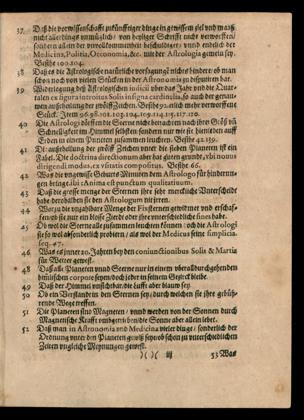 37 Daß die vorwissenschafft zukünfftiger dinge in gewissem ziel vnd maß/
nicht allerdings vnmüglich/ von heyliger Schrifft nicht verworffen/
sondern allein der vnvollkommenheit beschuldiget; vnnd endlich der
Medicina, Politia, Oeconomia, &c. mit der Astrologia gemein sey.
Besihe 100. 104.
38 Daß es die Astrologische natürliche vorsagung nichts hindere/ ob man
schon noch von vielen Stücken in der Astronomia zu disputiern hat.
39 Widerlegung deß Astrologischen iudicii vber das Jahr vnd die Quar-
talen ex figura introitus Solis in signa cardinalia, so auch der genan-
wen außtheilung der zwölff Zeichen. Besihe 92. nicht mehr verworffene
Stück. Item 96. 98. 101. 103. 104. 109. 114. 115. 117. 120.
40 Die Astrologi dörffen die Sterne nicht betrachten nach ihrer Größ vñ
Schnelligket im Himmel selbsten sondern nur wie sie hienieden auff
Erden in einem Puncten zusammen leuchten. Besihe 42. 129.
41 Die außtheilung der zwölff Zeichen vnter die sieben Planeten ist ein
Fabel. Die doctrina directionum aber hat guten grundt, vbi nouus
dirigendi modus, ex vsitatis compositus. Besihe 66.
42 Was die vngewisse Geburts Minuten dem Astrologo für hinderun-
gen bringe, ibi: Anima est punctum qualitatiuum.
43 Daß die grosse menge der Sternen ihre sehr merckliche Vnterscheide
habe derohalben sie den Astrologum nit irren.
44 Worzu die vnzahlbare Menge der Fixsternen gewidmet vnd erschaf-
fen/ ob sie nur ein blosse Zierde oder ihre vnterschiedliche fines habe.
45 Ob wol die Sterne alle zusammen leuchten/ können doch die Astrologi
sie so wol absonderlich probirn/ als wol der Medicus seine simplicia.
seq. 47.
46 Was es inner 20. Jahren bey den coniunctionibus Solis & Martis
für Wetter gewest.
47 Daß alle Planeten vnnd Sterne nur in einem vberall durchgehenden
himlischen corpore seyen/ doch jeder in seinem Bezirck bleibe.
48 Daß der Himmel vnsichtbar/ die Lufft aber blaw sey.
49
50 Ob ein Verstandt in den Sternen sey/ durch welchen sie ihre gebüh-
rende Wege treffen.
51 Die Planeten sind Magneten/ vnnd werden von der Sonnen durch
Magnetische Krafft vmbgetrieben/ die Sonne aber allein lebet.
52 Daß man in Astronomia vnd Medicina vieler dinge/ sonderlich der
Ordnung vnter den Planeten gewiß sey/ ob schon zu vnterschiedlichen
Zeiten vngleiche Meynungen gewest.
)( )( iij
53 Was